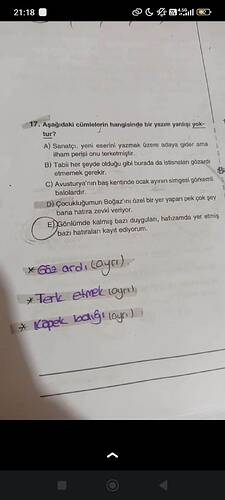 21:18
17. Aşağıdaki cümlelerin hangisinde bir yazım yanlışı yok-
tur?
A) Sanatçı, yeni eserini yazmak üzere adaya gider ama
ilham perisi onu terketmiştir.
B) Tabii her şeyde olduğu gibi burada da istisnaları gözardı
etmemek gerekir.
C) Avusturya'nın baş kentinde ocak ayının simgesi görkemli
balolardır.
D) Çocukluğumun Boğaz'ını özel bir yer yapan pek çok şey
bana hatıra zevki veriyor.
E) Gönlümde kalmış bazı duyguları, hafızamda yer etmiş
bazı hatıraları kayıt ediyorum.
* Göz ardı (ayrı)
* Terk etmek (ayrı)
* Köpek balığı (ayrı)